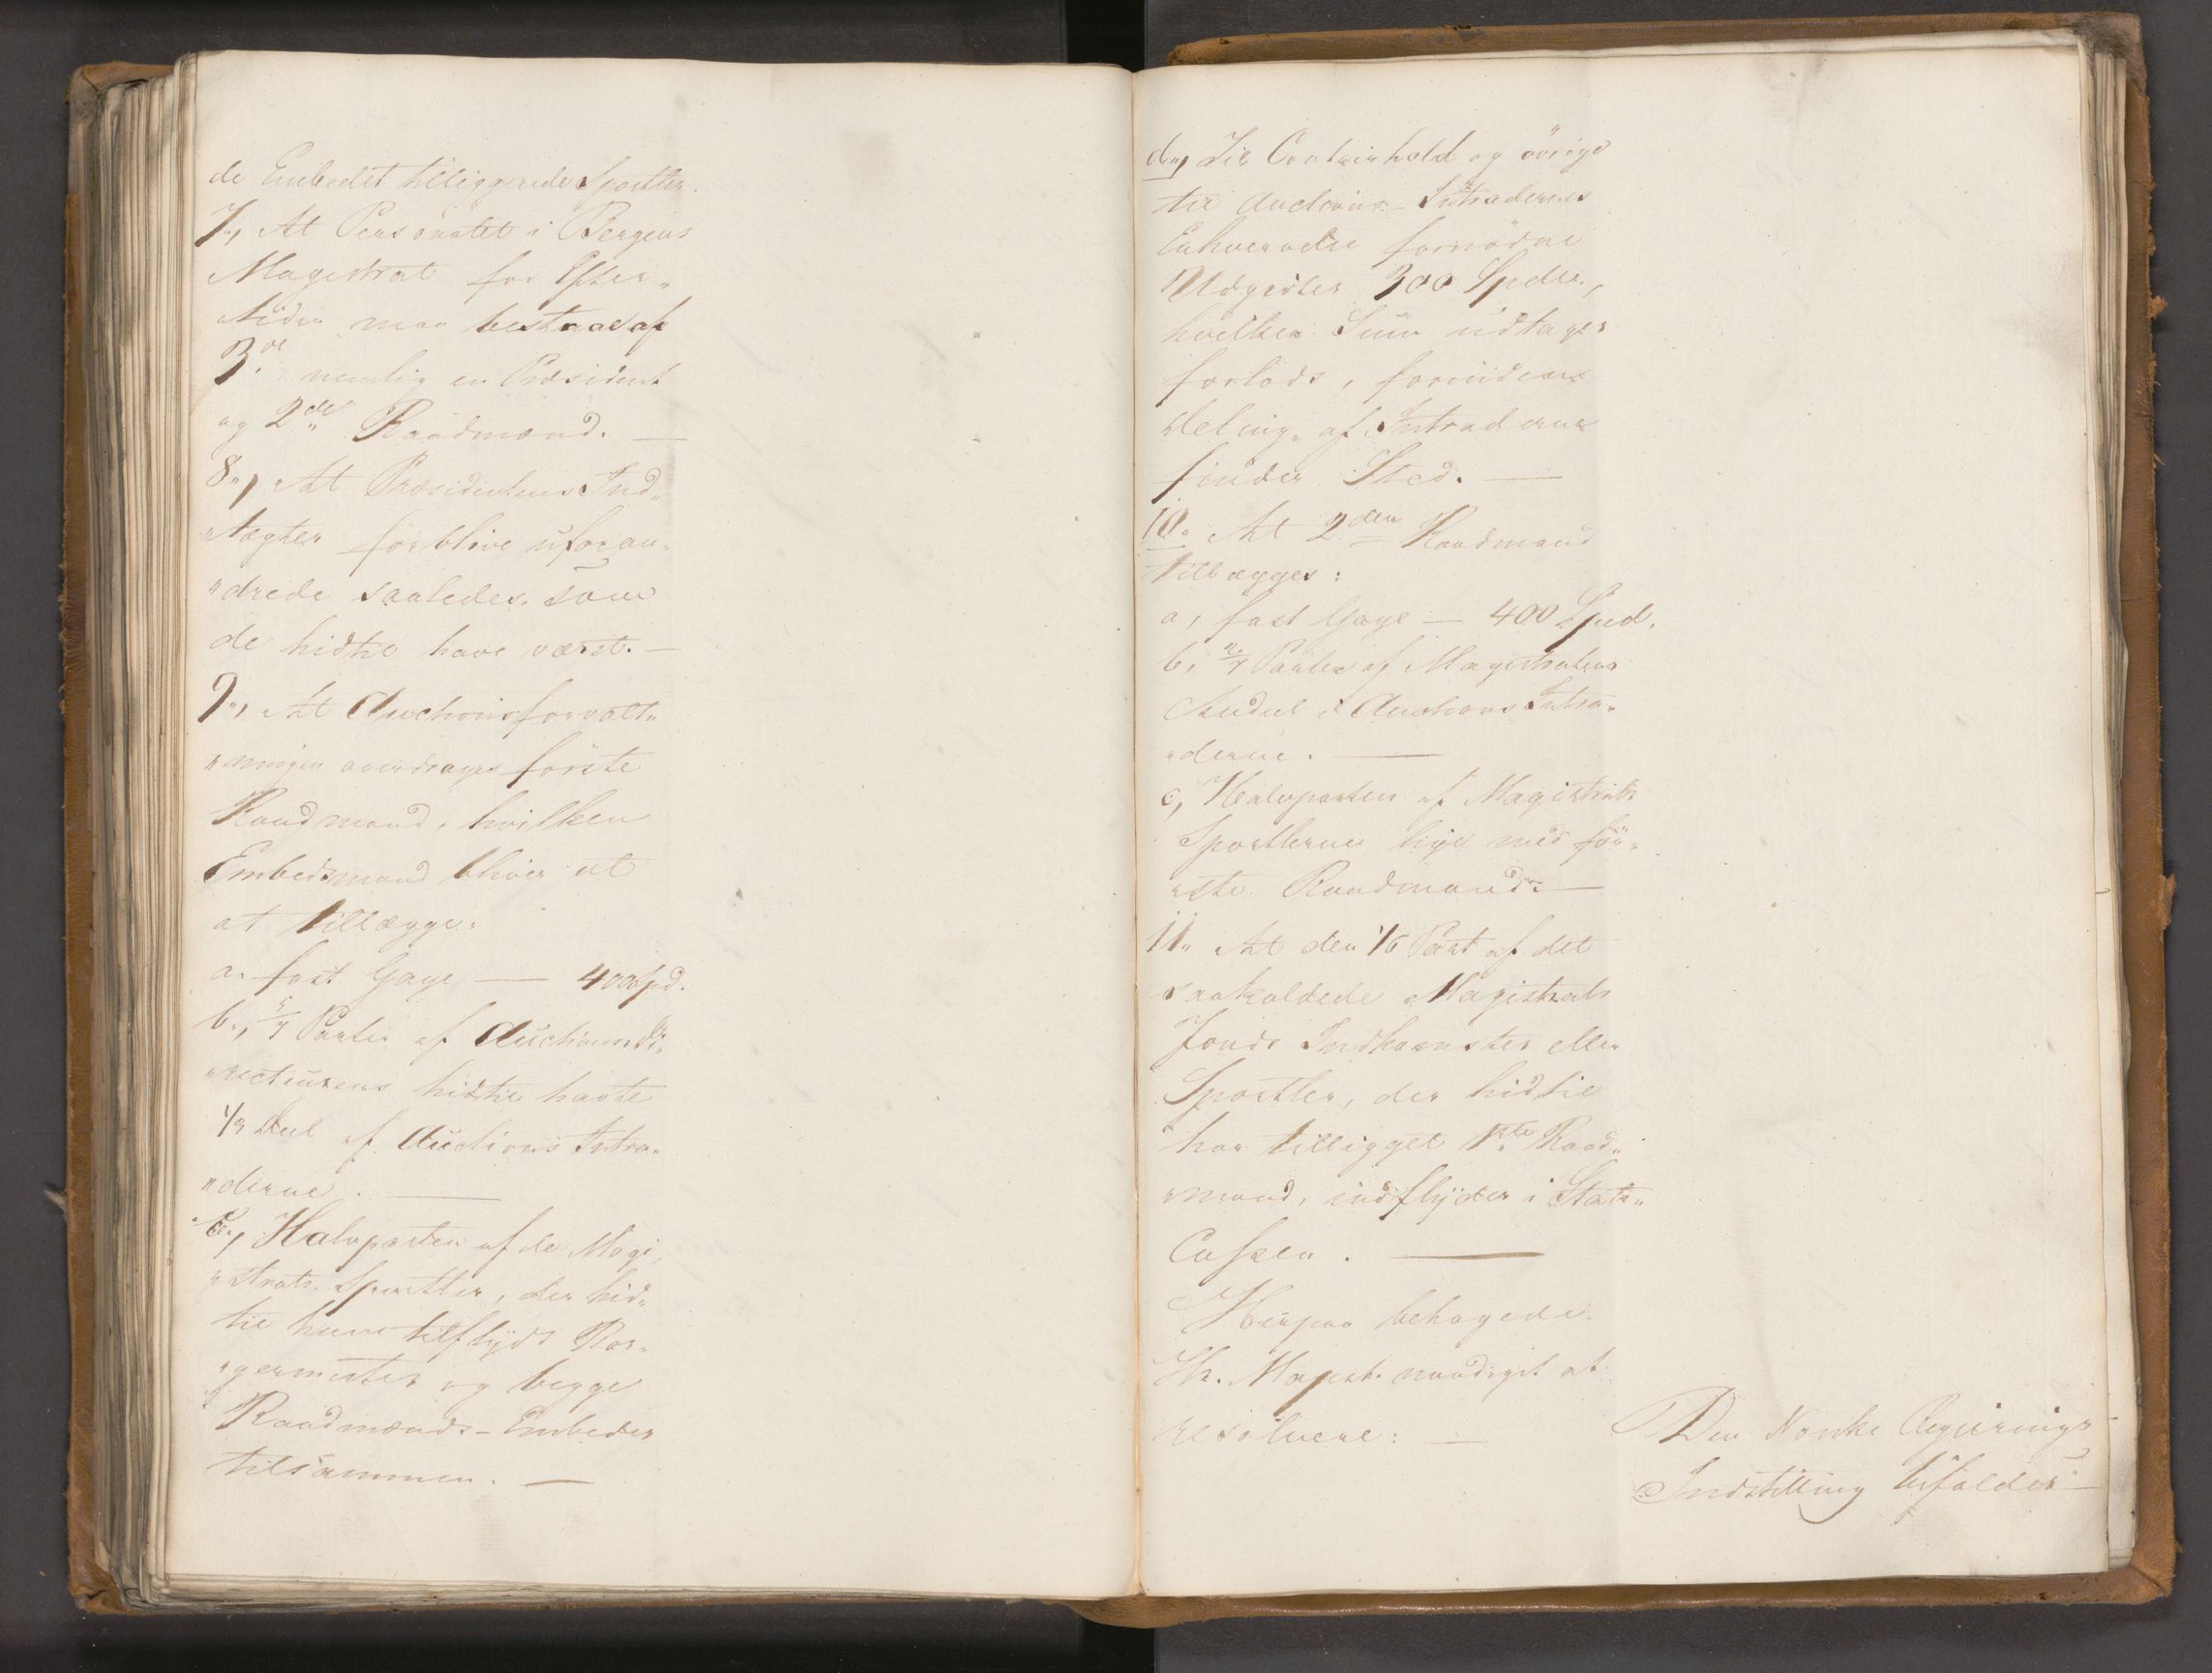 de Embedet tilliggende Sportler.
7", At Personalet i Bergens
Magistrat for Efter„
„tiden maa bestaae af
3de nemlig en Præsident
og 2de Raadmænd. —
8", At Præsidentens Ind„
„tægter forblive uforan„
„drede saaledes, som
de hidtil have været. —
9", At Auctionsforvalt„
„ningen overdrages første
Raadmand, hvilken
Embedsmand bliver at
at tillægge:
a. fast Gage — 400 Spd.
b., 5/7 Parter af Auctionsdi„
„recteurens hidtil havte
1/3 Deel af Auctions Intra„
„derne. —
c., Halvparten af de Magi„
„strats Sportler, der hid„
til have tilflydt Bor„
„germester og begge
Raadmands-Embeder
tilsammen. —
d", Til Contoirhold og övrige
til Auctions-Intradernes
Erhvervelse fornödne
Udgivter 300 Spdlr.,
hvilken Sum udtages
forlods, forinden
deling af Intraderne
finder Sted. —
10" At 2den Raadmand
tillægges:
a, fast Gage — 400 Spd.
b, 2/7 Parter af Magistratens
Andeel i Auctions Intra„
„derne. —
c, Halvparten af Magistrats
Sportlerne lige med för„
„ste Raadmand. —
11" At den 1/6 Part af det
saakaldede Magistrats
Fonds Indkomster eller
Sportler, der hidtil
har tilligget 1ste Raad„
„mand, indflyder i Stats„
Cassen. —
Herpaa behagede
Hs. Majest. naadigst at
resolvere: —
Den Norske Regjerings
Indstilling bifaldes —